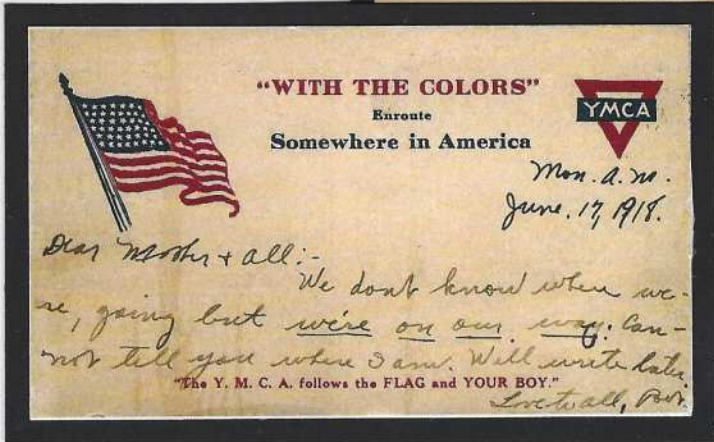 "WITH THE COLORS"
Enroute
Somewhere in America
YMCA
Mon. a.m.
June. 17, 1918.
Dear Mother & all:-
We dont know when we-
re, going but we're on our way. Can-
not tell you where I am. Will write later.
"The Y. M. C. A. follows the FLAG and YOUR BOY."
Love to all,